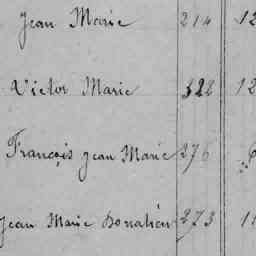 Jean Marie 214 12
Victor Marie 322 12
François Jean Marie 276
Jean Marie Donatien 273 11